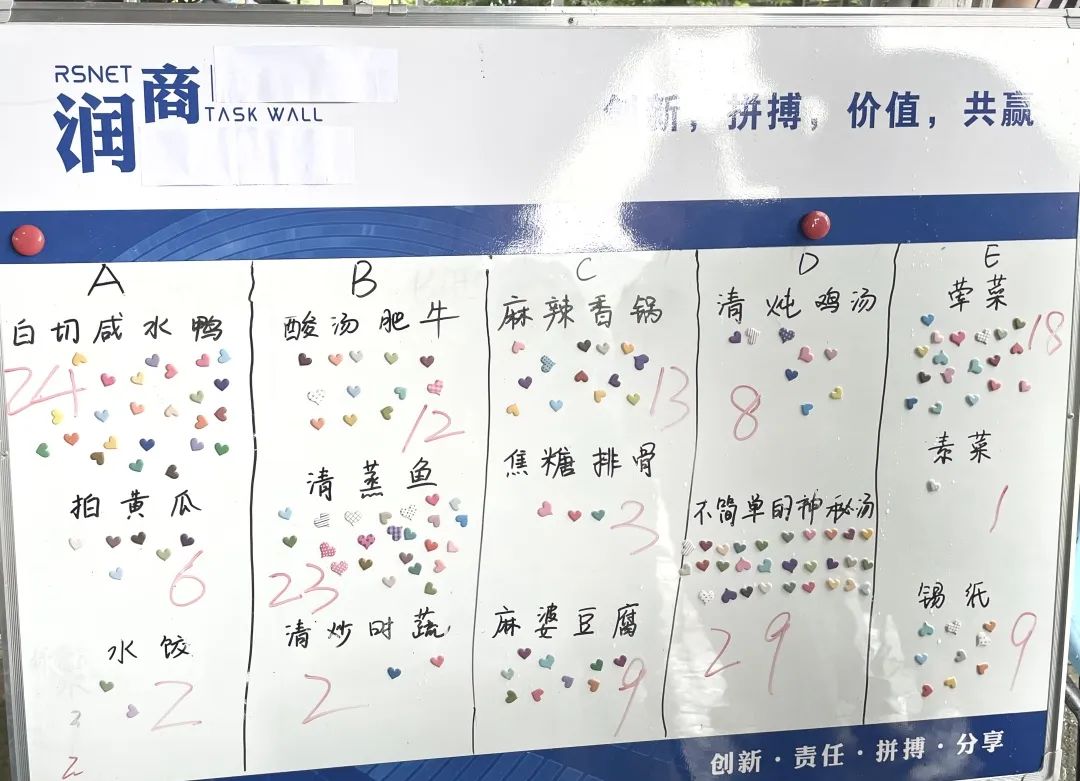 RSNET
润商
TASK WALL
创新，拼搏，价值，共赢
A
白切咸水鸭
24
拍黄瓜
6
水饺
2
2
2
B
酸汤肥牛
12
清蒸鱼
23
清炒时蔬
2
C
麻辣香锅
13
焦糖排骨
3
麻婆豆腐
9
D
清炖鸡汤
8
不简单的神秘汤
29
E
荤菜
18
素菜
1
锡纸
9
创新·责任·拼搏·分享